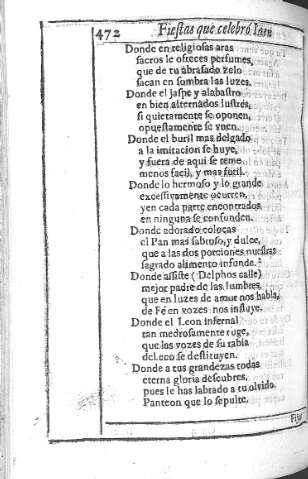 472 Fiestas que celebró Iaen
Donde en religiosas aras
sacros le ofreces perfumes,
que de tu abrasado zelo
sacan en sombra las luzes.
Donde el jaspe y alabastro
en bien alternados lustres,
si quietamente se oponen,
opuestamente se vnen.
Donde el buril mas delgado
a la imitacion se huye,
y fuera de aqui se teme
menos facil, y mas futil.
Donde lo hermoso y lo grande
excessivamente ocurren,
y en cada parte encontrados
en ninguna se confunden.
Donde adorado colocas
el Pan mas sabroso, y dulce,
que a las dos porciones nuestras
sagrado alimento infunde.
Donde assiste (Delphos calle)
mejor padre de las lumbres,
que en luzes de amor nos habla,
de Fè en vozes nos influye.
Donde el Leon infernal
tan medrosamente ruge,
que las vozes de su rabia
del eco se destituyen.
Donde a tus grandezas todas
eterna gloria descubres,
pues le has labrado a tu olvido
Panteon que lo sepulte.